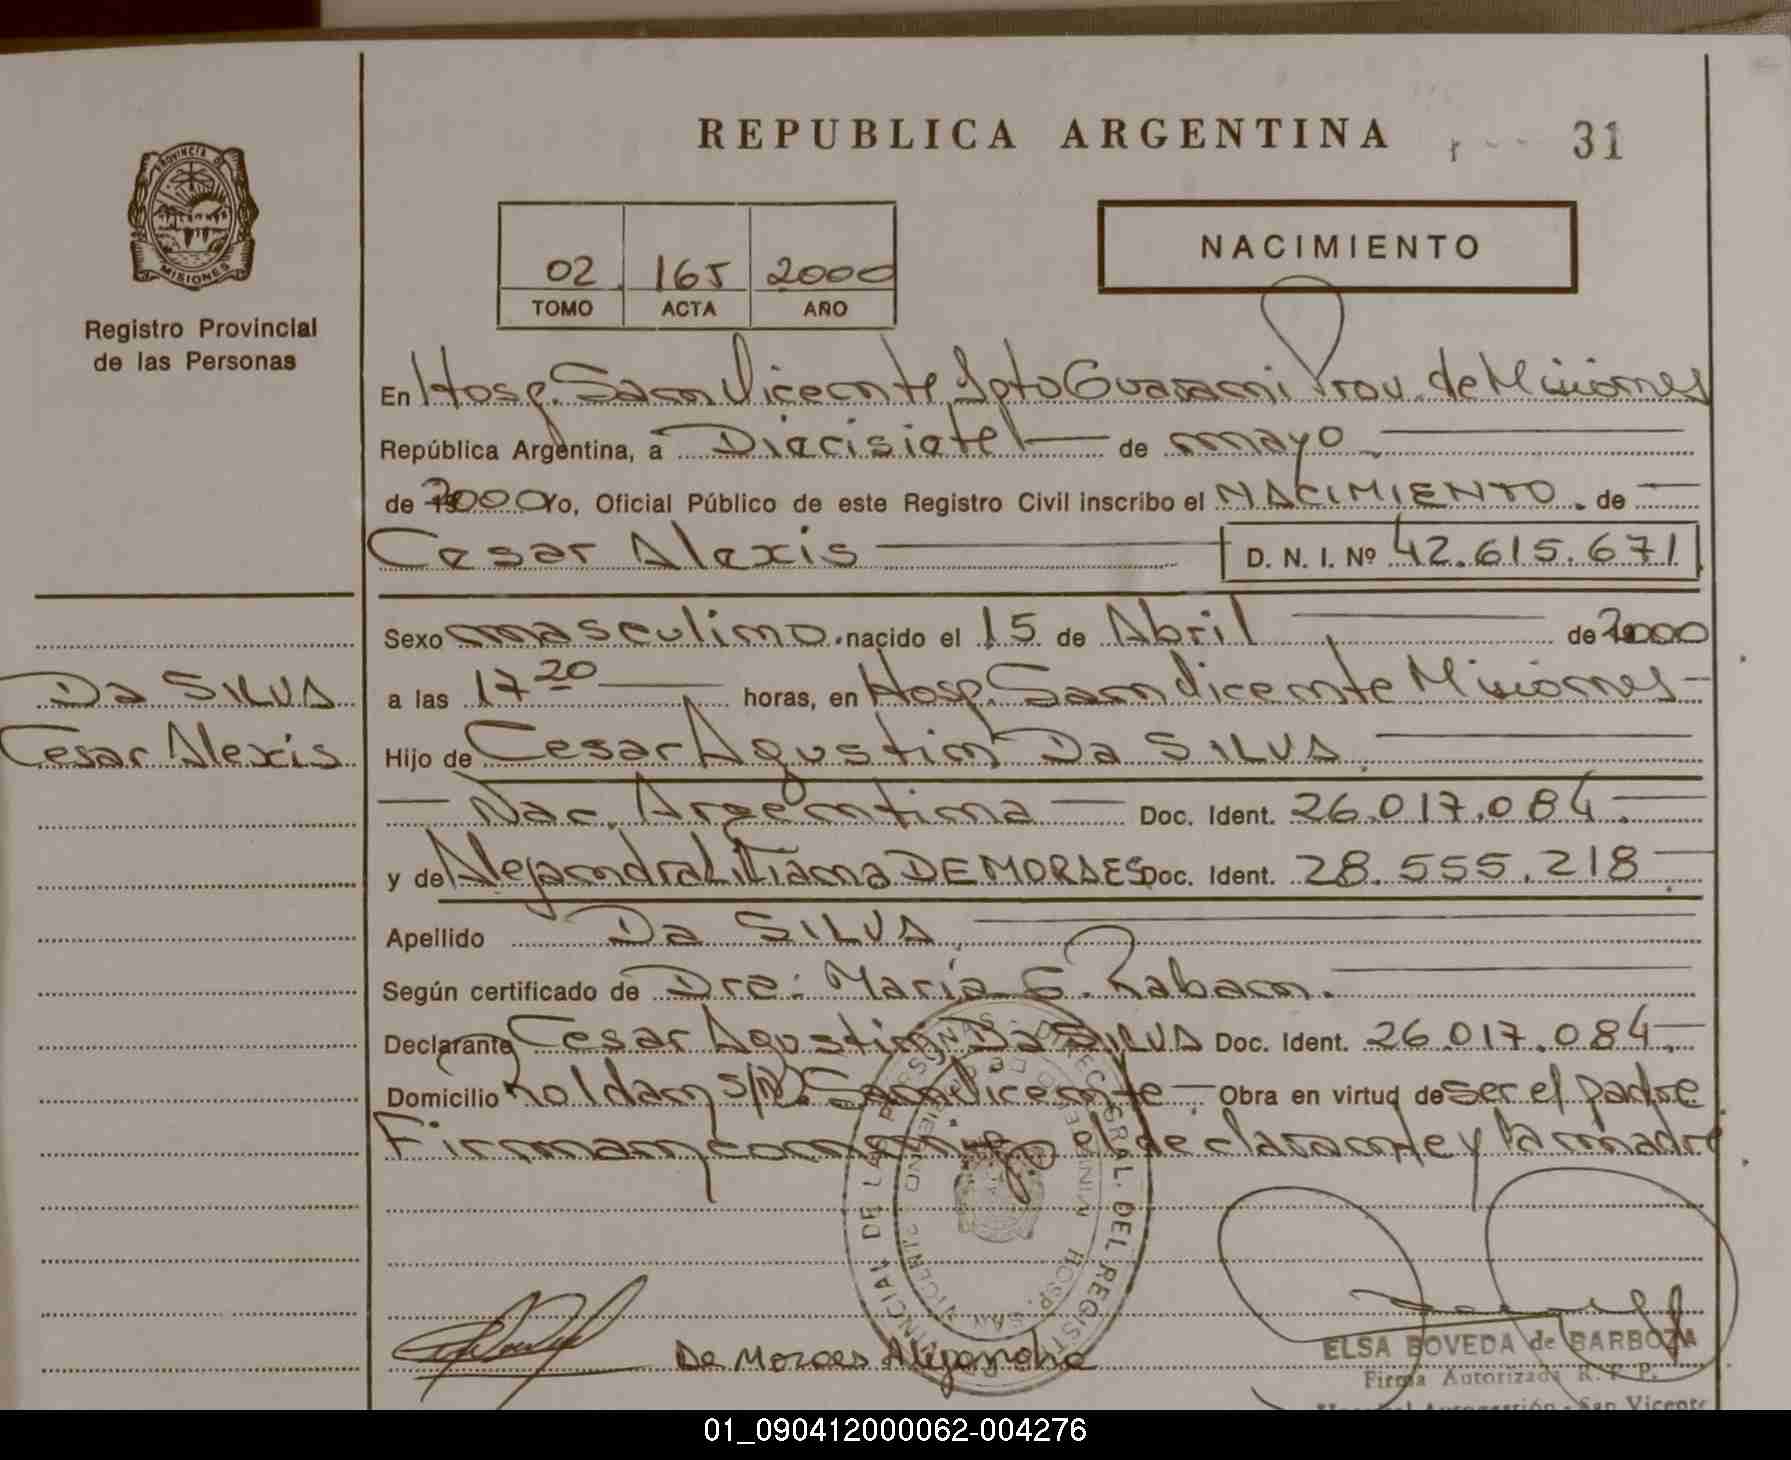 REPUBLICA ARGENTINA
31
PROVINCIA DE
MISIONES
Registro Provincial
de las Personas
02 165 2000
TOMO ACTA AÑO
NACIMIENTO
En Hosp. San Vicente Dpto Guarani Prov. de Misiones
República Argentina, a Diecisiete de mayo
de 2000 Yo, Oficial Público de este Registro Civil inscribo el NACIMIENTO. de
Cesar Alexis D. N. I. Nº 42.615.671
Sexo masculino. nacido el 15 de Abril de 2000
Da SILVA
a las 17 20 horas, en Hosp. San Vicente Misiones
Cesar Alexis
Hijo de Cesar Agustin Da SILVA
Nac. Argentina Doc. Ident. 26.017.084
y de Alejandra Liliana DE MORAES Doc. Ident. 28.555.218
Apellido Da SILVA
Según certificado de Dra: María G. Raban.
Declarante Cesar Agustin Da SILVA Doc. Ident. 26.017.084
Domicilio Roldan S/N. San Vicente Obra en virtud de ser el padre
Firman conmigo el declarante y la madre
De Moraes Alejandra
ELSA BOVEDA de BARBOZA
Firma Autorizada R. P. P.
San Vicente
01_090412000062-004276